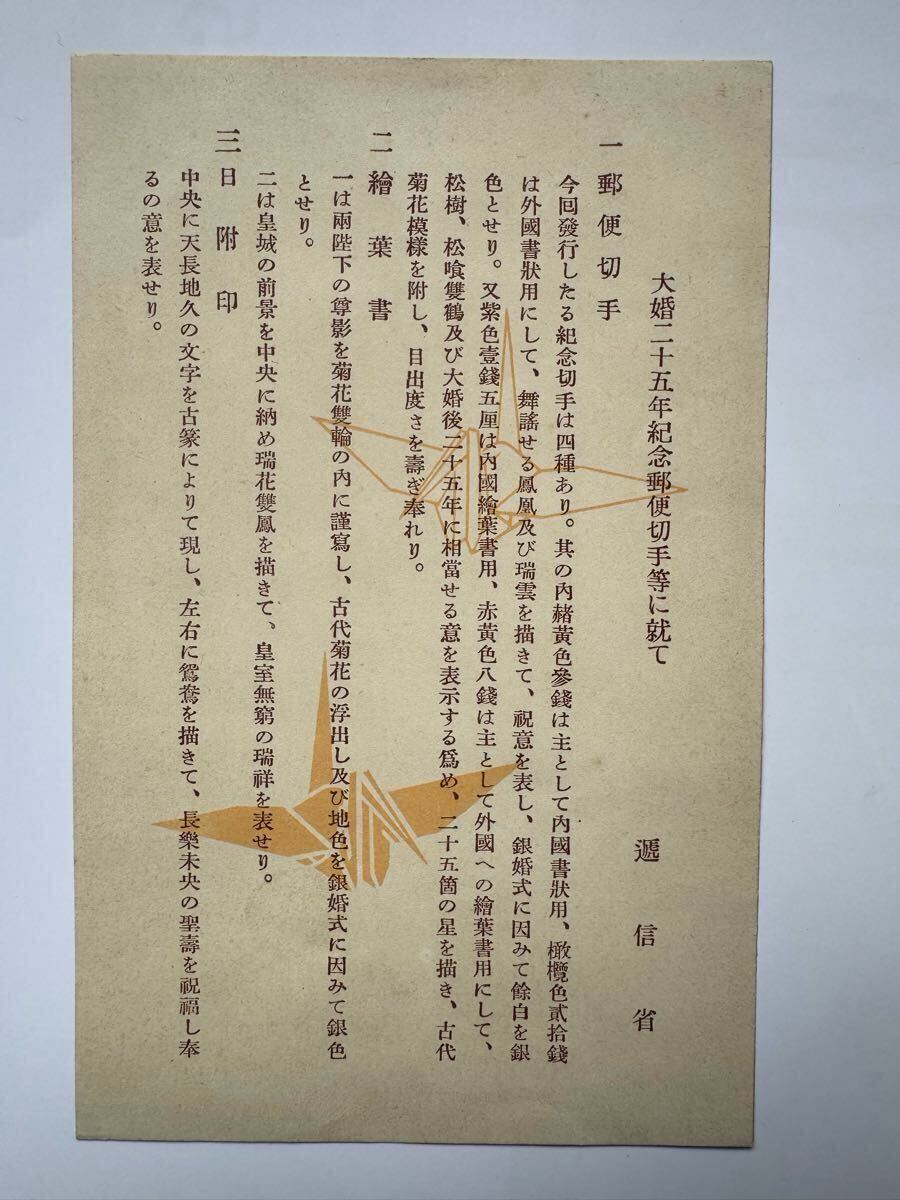 大婚二十五年紀念郵便切手等に就て
遞信省
一 郵便切手
今囘發行したる紀念切手は四種あり。其の內赭黃色參錢は主として內國書狀用、橄欖色貳拾錢
は外國書狀用にして、舞謠せる鳳凰及び瑞雲を描きて、祝意を表し、銀婚式に因みて餘白を銀
色とせり。又紫色壹錢五厘は內國繪葉書用、赤黃色八錢は主として外國への繪葉書用にして、
松樹、松喰雙鶴及び大婚後二十五年に相當せる意を表示する爲め、二十五箇の星を描き、古代
菊花模樣を附し、目出度さを壽ぎ奉れり。
二 繪葉書
一は兩陛下の尊影を菊花雙輪の內に謹寫し、古代菊花の浮出し及び地色を銀婚式に因みて銀色
とせり。
二は皇城の前景を中央に納め瑞花雙鳳を描きて、皇室無窮の瑞祥を表せり。
三 日附印
中央に天長地久の文字を古篆によりて現し、左右に鴛鴦を描きて、長樂未央の聖壽を祝福し奉
るの意を表せり。